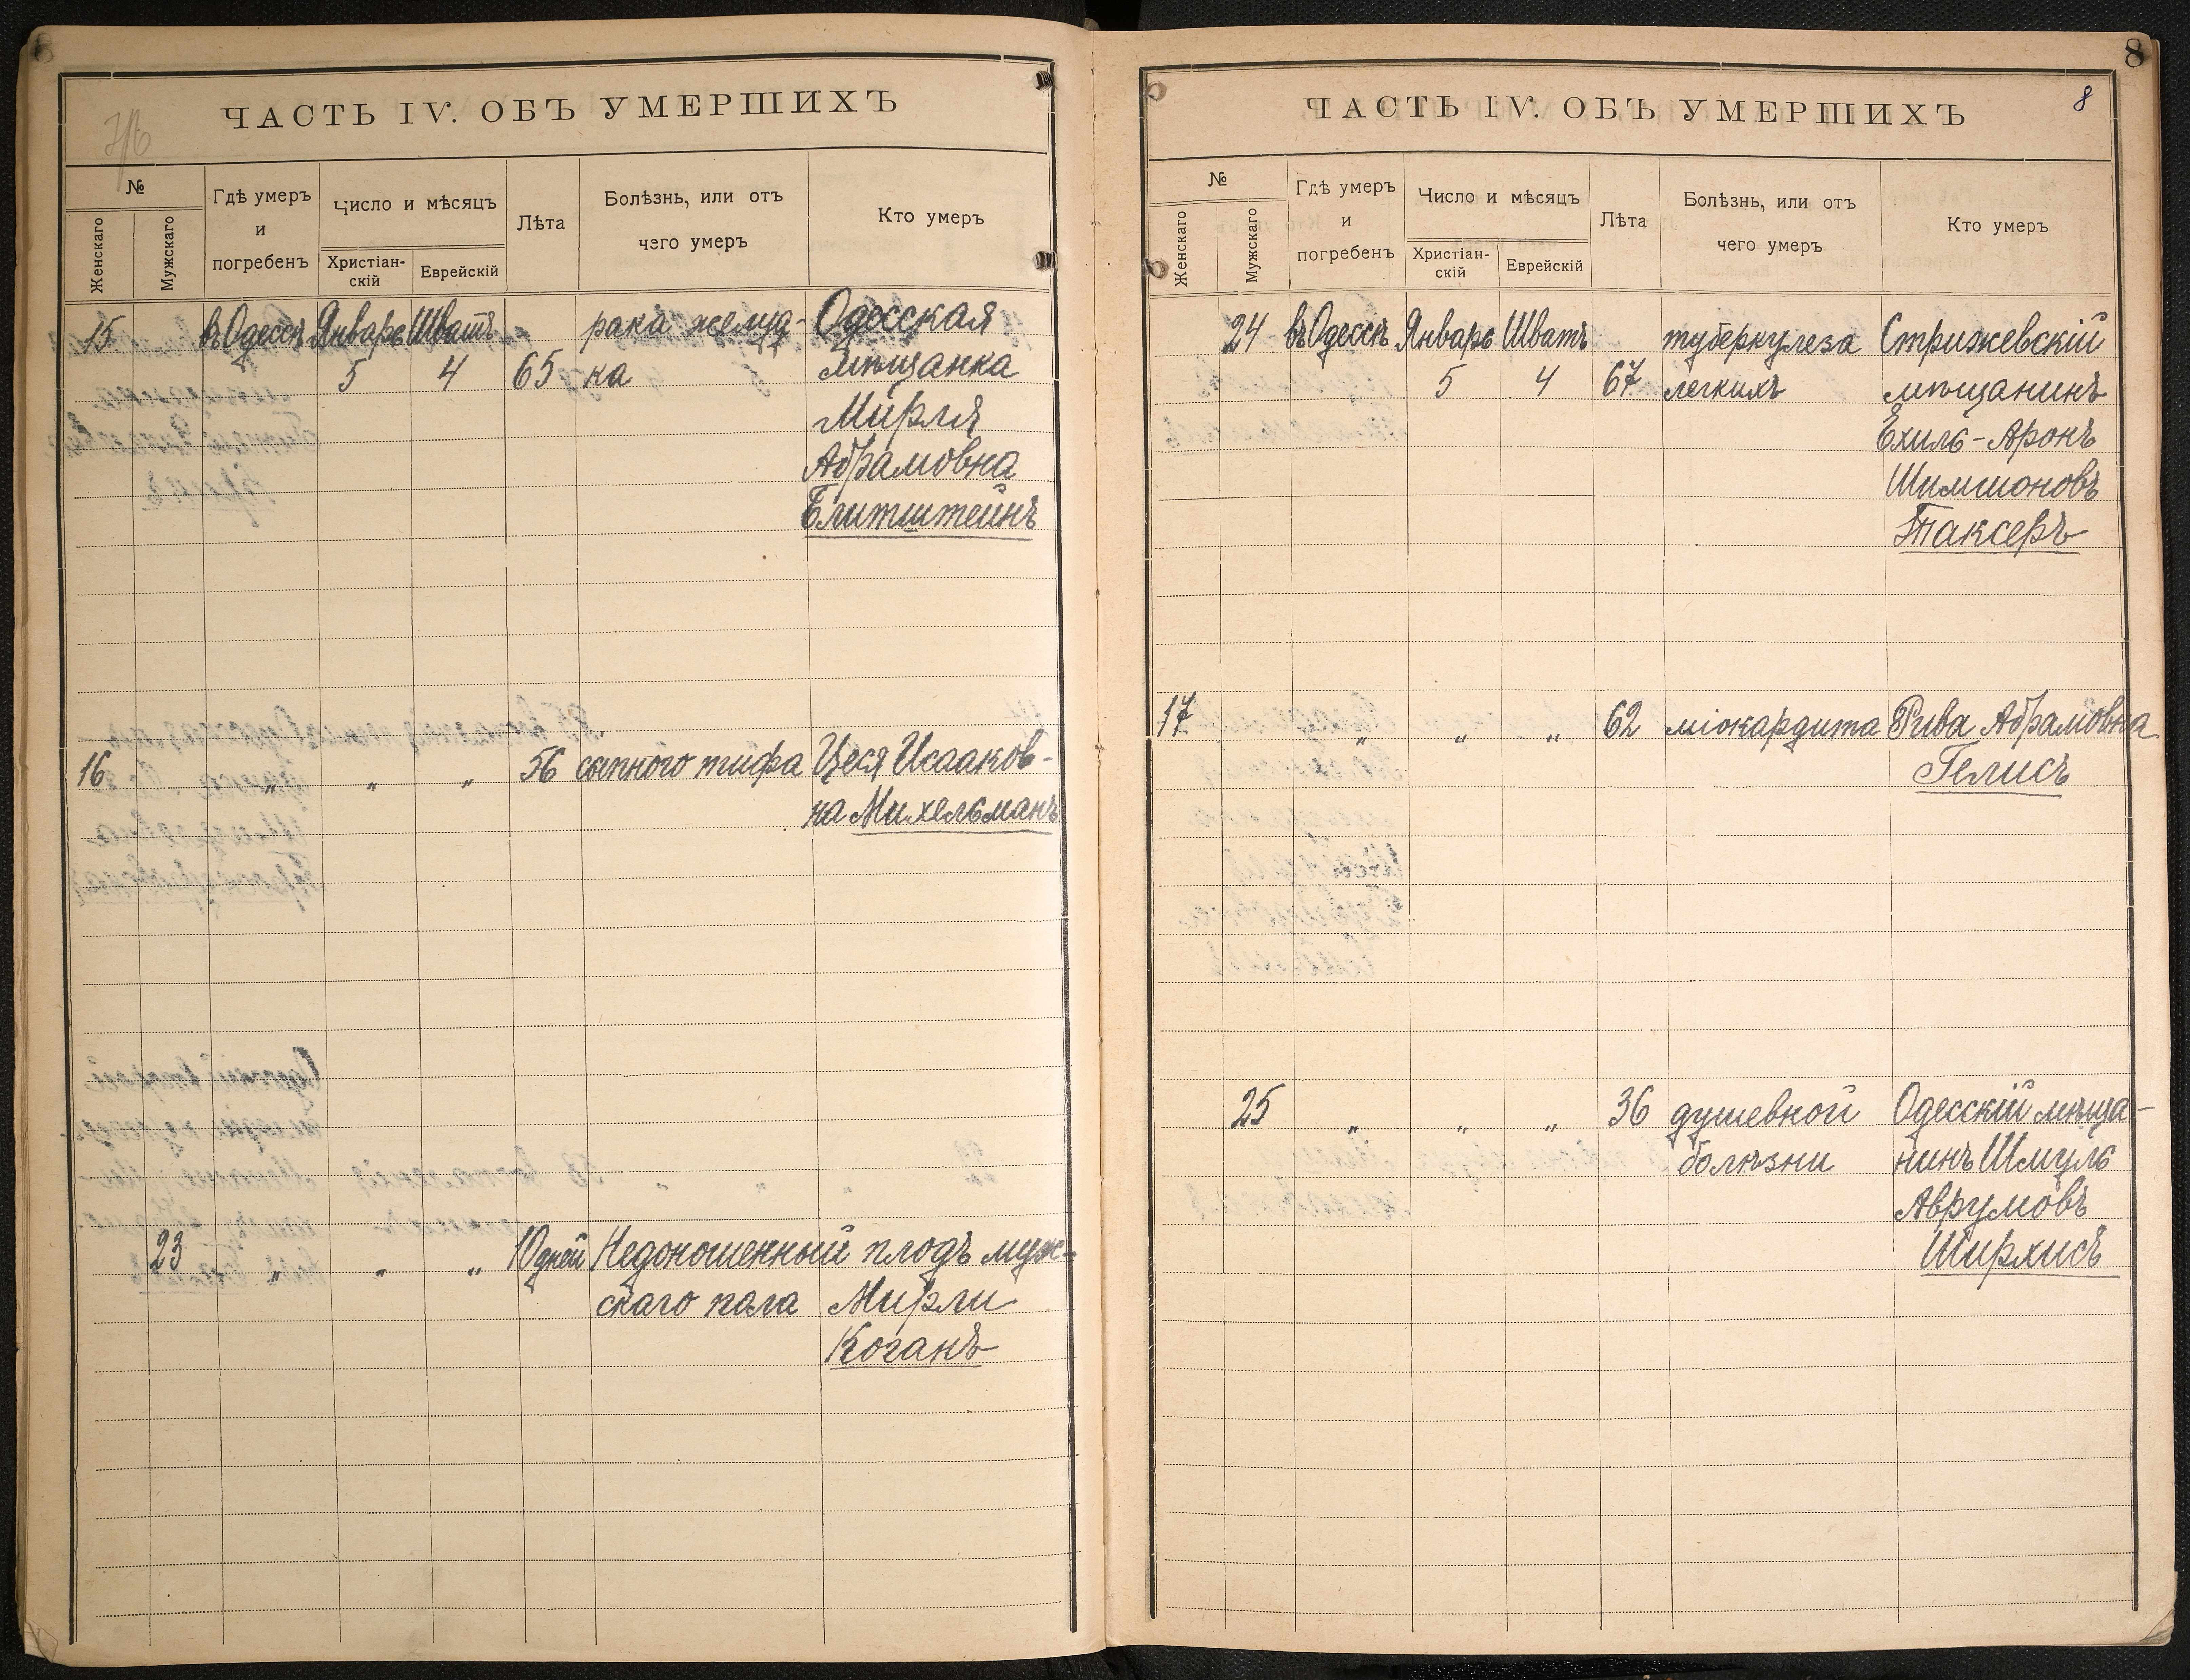 ЧАСТЬ IV. ОБЪ УМЕРШИХЪ
№
Женскаго
Мужскаго
Гдѣ умеръ
и
погребенъ
Число и мѣсяцъ
Христіан-
скій
Еврейскій
Лѣта
Болѣзнь, или отъ
чего умеръ
Кто умеръ
15 въ Одессѣ Январь Шватъ рака желуд- Одесская
5 4 65 ка мѣщанка
Мирля
Абрамовна
Блитштейнъ
16 " " " 56 сыпного тифа Цеся Исааков-
на Михельманъ
23 " " " 10 дней Недоношенный плодъ муж-
скаго пола Мирли
Коганъ
8
ЧАСТЬ IV. ОБЪ УМЕРШИХЪ 8
№
Женскаго
Мужскаго
Гдѣ умеръ
и
погребенъ
Число и мѣсяцъ
Христіан-
скій
Еврейскій
Лѣта
Болѣзнь, или отъ
чего умеръ
Кто умеръ
24 въ Одессѣ Январь Шватъ туберкулеза Стрижевскій
5 4 67 легкихъ мѣщанинъ
Ехиль-Аронъ
Шимшоновъ
Таксеръ
17 " " " 62 міокардита Рива Абрамовна
Гелисъ
25 " " " 36 душевной Одесскій мѣща-
болѣзни нинъ Шмуль
Аврумовъ
Ширхисъ